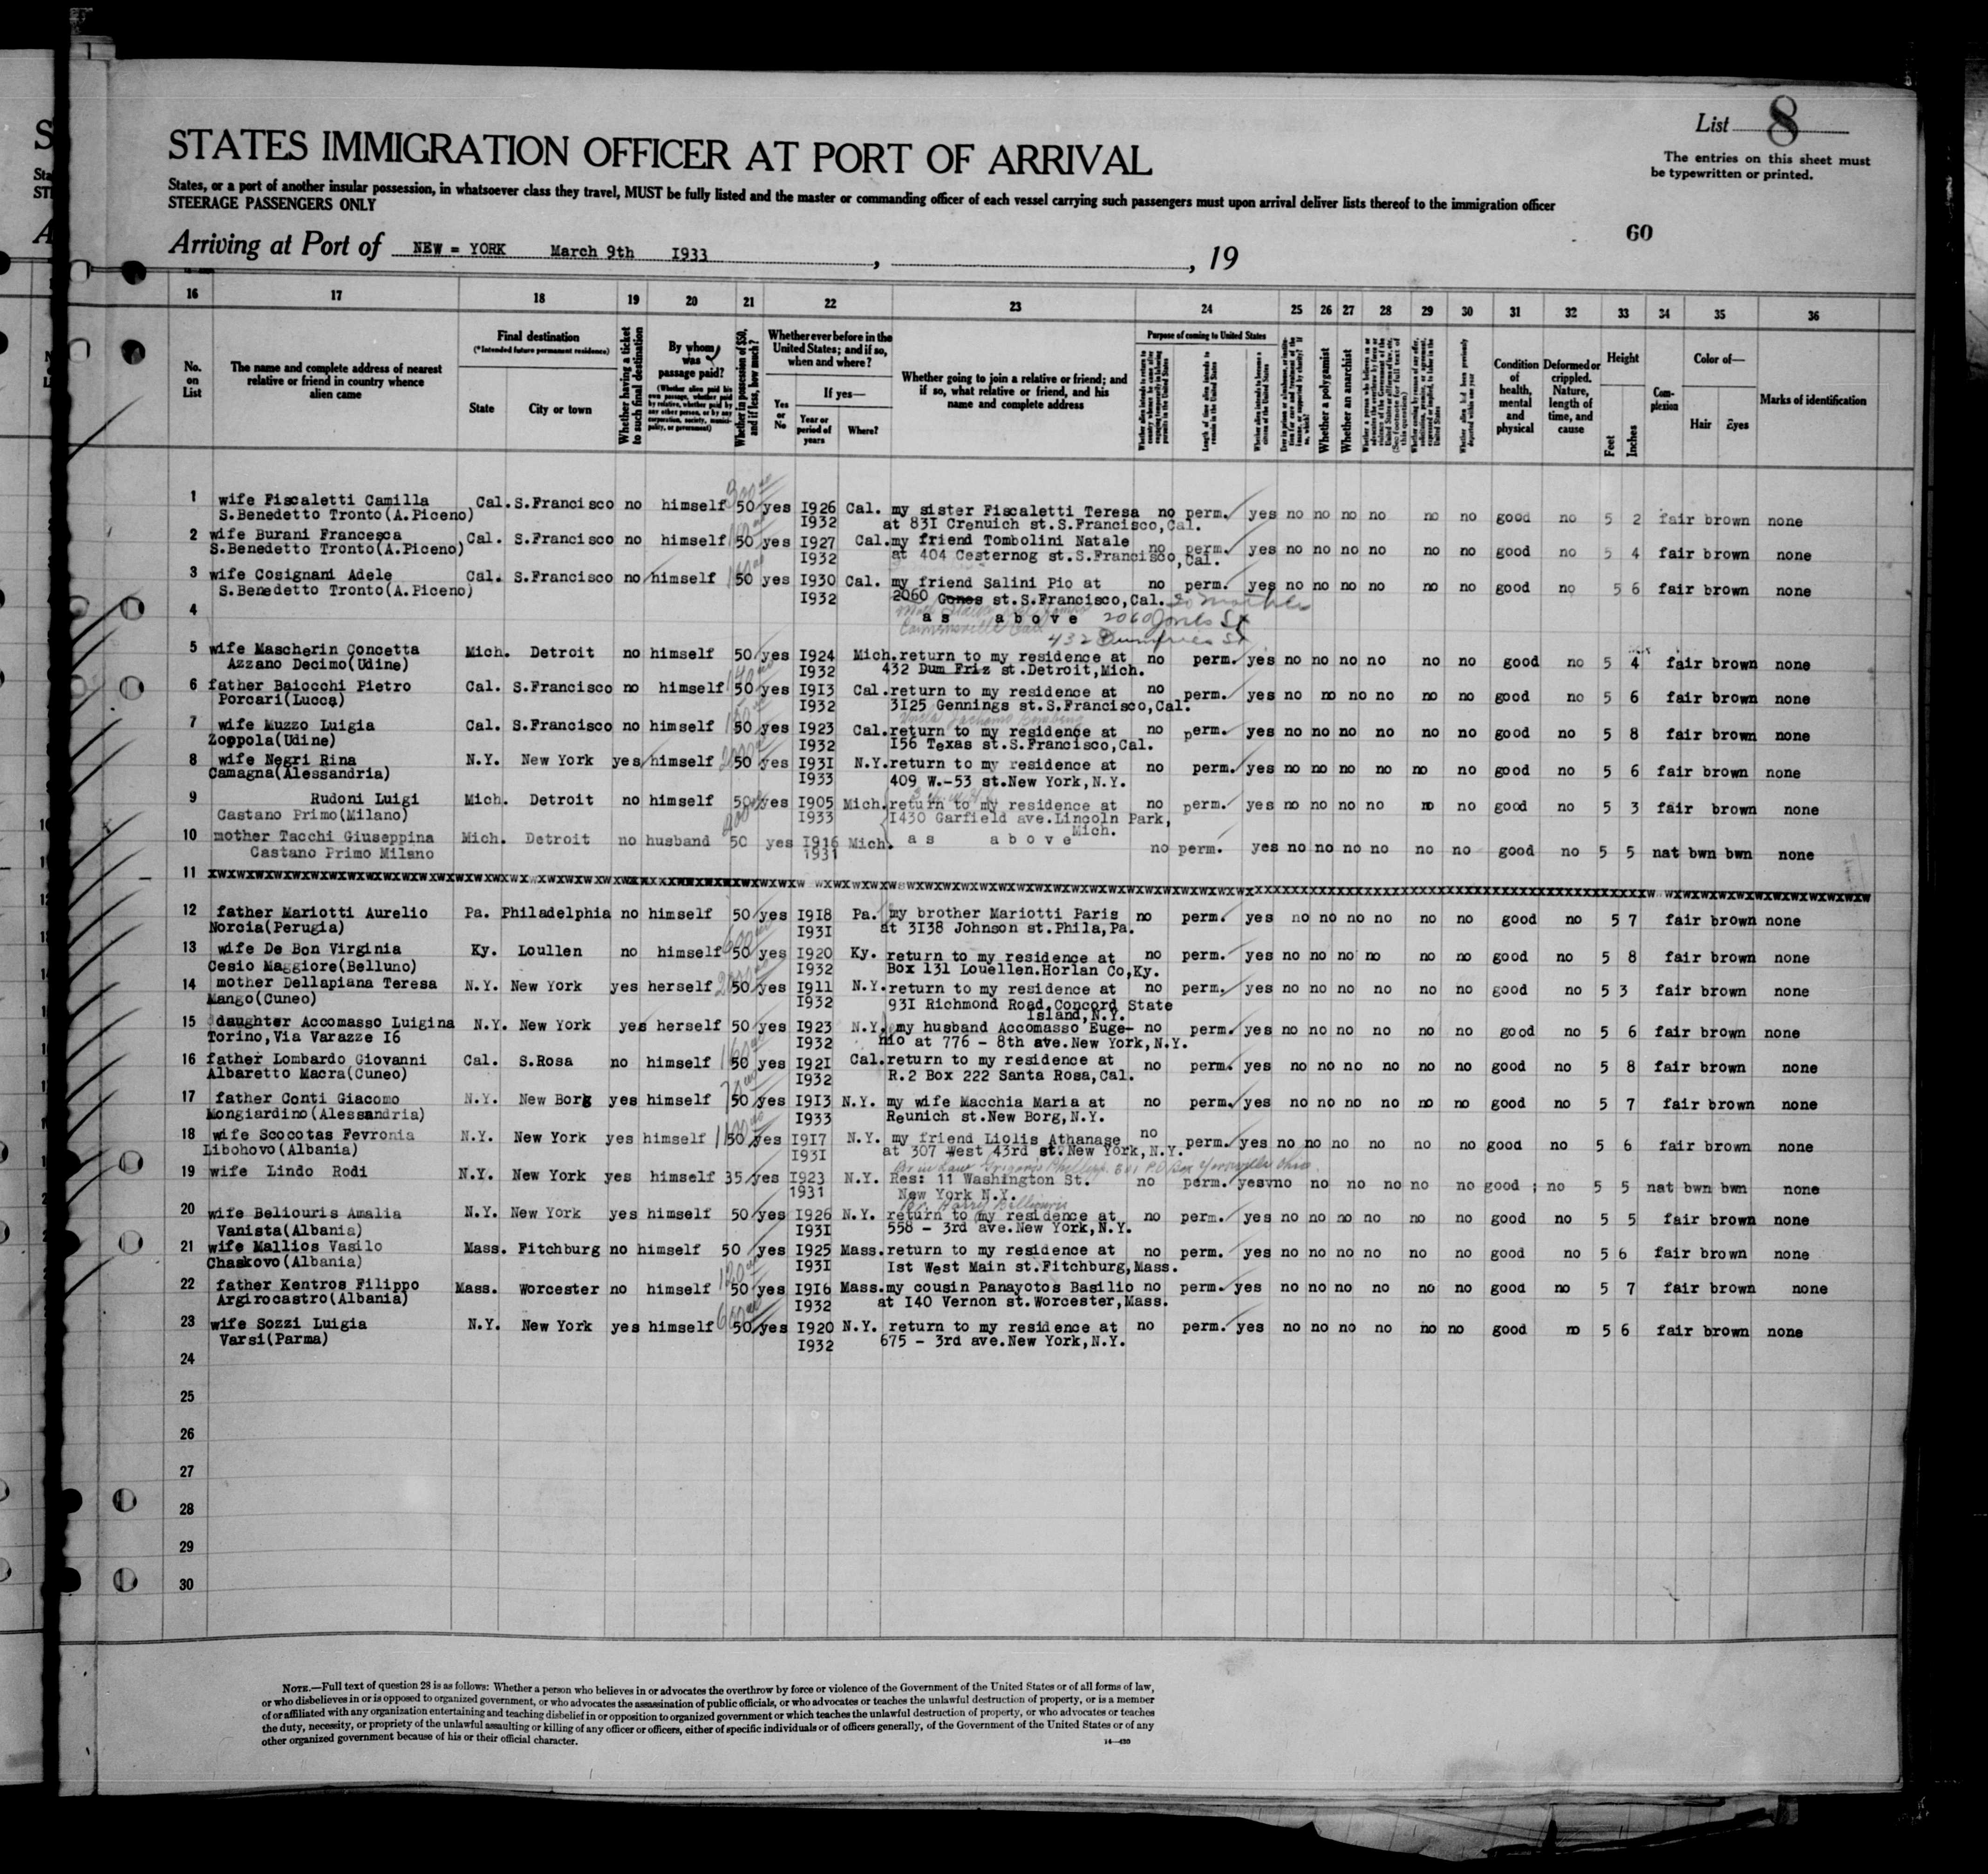 List 8
The entries on this sheet must
be typewritten or printed.
STATES IMMIGRATION OFFICER AT PORT OF ARRIVAL
States, or a port of another insular possession, in whatsoever class they travel, MUST be fully listed and the master or commanding officer of each vessel carrying such passengers must upon arrival deliver lists thereof to the immigration officer
STEERAGE PASSENGERS ONLY
60
Arriving at Port of NEW = YORK March 9th I933, , 19
16 17 18 19 20 21 22 23 24 25 26 27 28 29 30 31 32 33 34 35 36
No. on List
The name and complete address of nearest relative or friend in country whence alien came
Final destination
(*Intended future permanent residence)
State
City or town
Whether having a ticket to such final destination
By whom was passage paid?
(Whether alien paid his own passage, whether paid by relative, whether paid by any other person, or by any corporation, society, municipality, or government)
Whether in possession of $50, and if less, how much?
Whether ever before in the United States; and if so, when and where?
Yes or No
If yes—
Year or period of years
Where?
Whether going to join a relative or friend; and if so, what relative or friend, and his name and complete address
Purpose of coming to United States
Length of time alien intends to remain in the United States
Whether alien intends to become a citizen of the United States
Whether a polygamist
Whether an anarchist
Condition of health, mental and physical
Deformed or crippled. Nature, length of time, and cause
Height
Feet
Inches
Complexion
Color of—
Hair
Eyes
Marks of identification
1 wife Fiscaletti Camilla Cal. S.Francisco no himself 50 yes I926 Cal. my sister Fiscaletti Teresa no perm. yes no no no no no no good no 5 2 fair brown none
S.Benedetto Tronto(A.Piceno) I932 at 83I Crenuich st.S.Francisco,Cal.
2 wife Burani Francesca Cal. S.Francisco no himself 50 yes I927 Cal. my friend Tombolini Natale no perm. yes no no no no no no good no 5 4 fair brown none
S.Benedetto Tronto(A.Piceno) I932 at 404 Cesternog st.S.Francisco,Cal.
3 wife Cosignani Adele Cal. S.Francisco no himself 50 yes I930 Cal. my friend Salini Pio at no perm. yes no no no no no no good no 5 6 fair brown none
S.Benedetto Tronto(A.Piceno) I932 2060 Gones st.S.Francisco,Cal.
4 as above 2060 Jones St
432 Dumfries St
5 wife Mascherin Concetta Mich. Detroit no himself 50 yes I924 Mich. return to my residence at no perm. yes no no no no no no good no 5 4 fair brown none
Azzano Decimo(Udine) I932 432 Dum Friz st.Detroit,Mich.
6 father Baiocchi Pietro Cal. S.Francisco no himself 50 yes I9I3 Cal. return to my residence at no perm. yes no no no no no no good no 5 6 fair brown none
Porcari(Lucca) I932 3I25 Gennings st.S.Francisco,Cal.
7 wife Muzzo Luigia Cal. S.Francisco no himself 50 yes I923 Cal. return to my residence at no perm. yes no no no no no no good no 5 8 fair brown none
Zoppola(Udine) I932 I56 Texas st.S.Francisco,Cal.
8 wife Negri Rina N.Y. New York yes himself 50 yes I93I N.Y. return to my residence at no perm. yes no no no no no no good no 5 6 fair brown none
Camagna(Alessandria) I933 409 W.-53 st.New York,N.Y.
9 Rudoni Luigi Mich. Detroit no himself 50 yes I905 Mich. return to my residence at no perm. yes no no no no no no good no 5 3 fair brown none
Castano Primo(Milano) I933 I430 Garfield ave.Lincoln Park,
Mich.
10 mother Tacchi Giuseppina Mich. Detroit no husband 50 yes I9I6 Mich. as above no perm. yes no no no no no no good no 5 5 nat bwn bwn none
Castano Primo Milano 1931
11
12 father Mariotti Aurelio Pa. Philadelphia no himself 50 yes I9I8 Pa. my brother Mariotti Paris no perm. yes no no no no no no good no 5 7 fair brown none
Norcia(Perugia) I93I at 3I38 Johnson st.Phila,Pa.
13 wife De Bon Virginia Ky. Loullen no himself 50 yes I920 Ky. return to my residence at no perm. yes no no no no no no good no 5 8 fair brown none
Cesio Maggiore(Belluno) I932 Box 131 Louellen.Horlan Co,Ky.
14 mother Dellapiana Teresa N.Y. New York yes herself 50 yes I9II N.Y. return to my residence at no perm. yes no no no no no no good no 5 3 fair brown none
Mango(Cuneo) I932 93I Richmond Road,Concord State
Island,N.Y.
15 daughter Accomasso Luigina N.Y. New York yes herself 50 yes I923 N.Y. my husband Accomasso Euge- no perm. yes no no no no no no good no 5 6 fair brown none
Torino,Via Varazze I6 I932 nio at 776 - 8th ave.New York,N.Y.
16 father Lombardo Giovanni Cal. S.Rosa no himself 50 yes I92I Cal. return to my residence at no perm. yes no no no no no no good no 5 8 fair brown none
Albaretto Macra(Cuneo) I932 R.2 Box 222 Santa Rosa,Cal.
17 father Conti Giacomo N.Y. New Borg yes himself 50 yes I9I3 N.Y. my wife Macchia Maria at no perm. yes no no no no no no good no 5 7 fair brown none
Mongiardino(Alessandria) I933 Reunich st.New Borg,N.Y.
18 wife Scocotas Fevronia N.Y. New York yes himself 50 yes I9I7 N.Y. my friend Liolis Athanase no perm. yes no no no no no no good no 5 6 fair brown none
Libohovo(Albania) I93I at 307 West 43rd st.New York,N.Y.
19 wife Lindo Rodi N.Y. New York yes himself 35 yes I923 N.Y. Res: 11 Washington St. no perm. yes no no no no no no good no 5 5 nat bwn bwn none
1931 New York N.Y.
20 wife Beliouris Amalia N.Y. New York yes himself 50 yes I926 N.Y. return to my residence at no perm. yes no no no no no no good no 5 5 fair brown none
Vanista(Albania) I93I 558 - 3rd ave.New York,N.Y.
21 wife Mallios Vasilo Mass. Fitchburg no himself 50 yes I925 Mass. return to my residence at no perm. yes no no no no no no good no 5 6 fair brown none
Chaskovo(Albania) I93I Ist West Main st.Fitchburg,Mass.
22 father Kentros Filippo Mass. Worcester no himself 50 yes I9I6 Mass. my cousin Panayotos Basilio no perm. yes no no no no no no good no 5 7 fair brown none
Argirocastro(Albania) I932 at I40 Vernon st.Worcester,Mass.
23 wife Sozzi Luigia N.Y. New York yes himself 50 yes I920 N.Y. return to my residence at no perm. yes no no no no no no good no 5 6 fair brown none
Varsi(Parma) I932 675 - 3rd ave.New York,N.Y.
24
25
26
27
28
29
30
NOTE.—Full text of question 28 is as follows: Whether a person who believes in or advocates the overthrow by force or violence of the Government of the United States or of all forms of law,
or who disbelieves in or is opposed to organized government, or who advocates the assassination of public officials, or who advocates or teaches the unlawful destruction of property, or is a member
of or affiliated with any organization entertaining and teaching disbelief in or opposition to organized government or which teaches the unlawful destruction of property, or who advocates or teaches
the duty, necessity, or propriety of the unlawful assaulting or killing of any officer or officers, either of specific individuals or of officers generally, of the Government of the United States or of any
other organized government because of his or their official character.
14—430